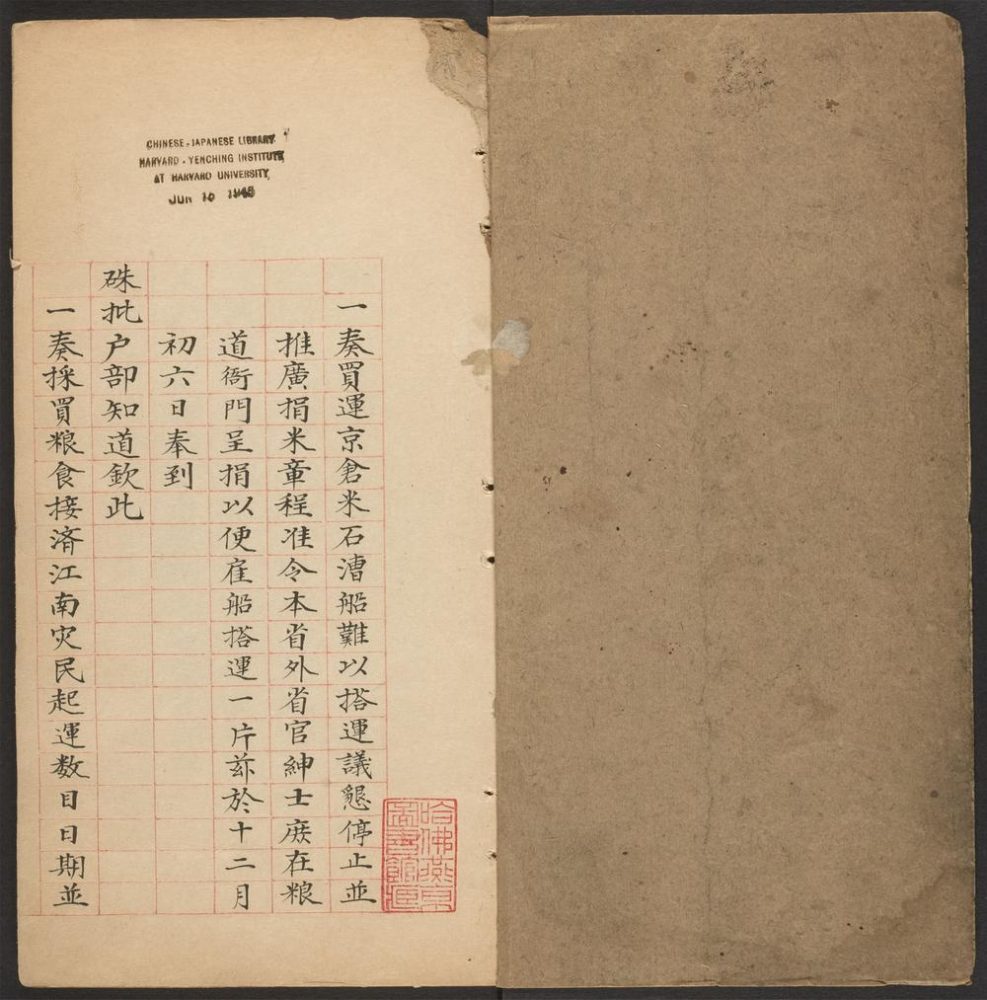 CHINESE-JAPANESE LIBRARY
HARVARD-YENCHING INSTITUTE
AT HARVARD UNIVERSITY
JUN 16 1945
一奏買運京倉米石漕船難以搭運議懇停止並
推廣捐米章程准令本省外省官紳士庶在粮
道衙門呈捐以便雇船搭運一片茲於十二月
初六日奉到
硃批户部知道欽此
一奏採買粮食接濟江南灾民起運数目日期並
哈佛燕京
圖書館藏